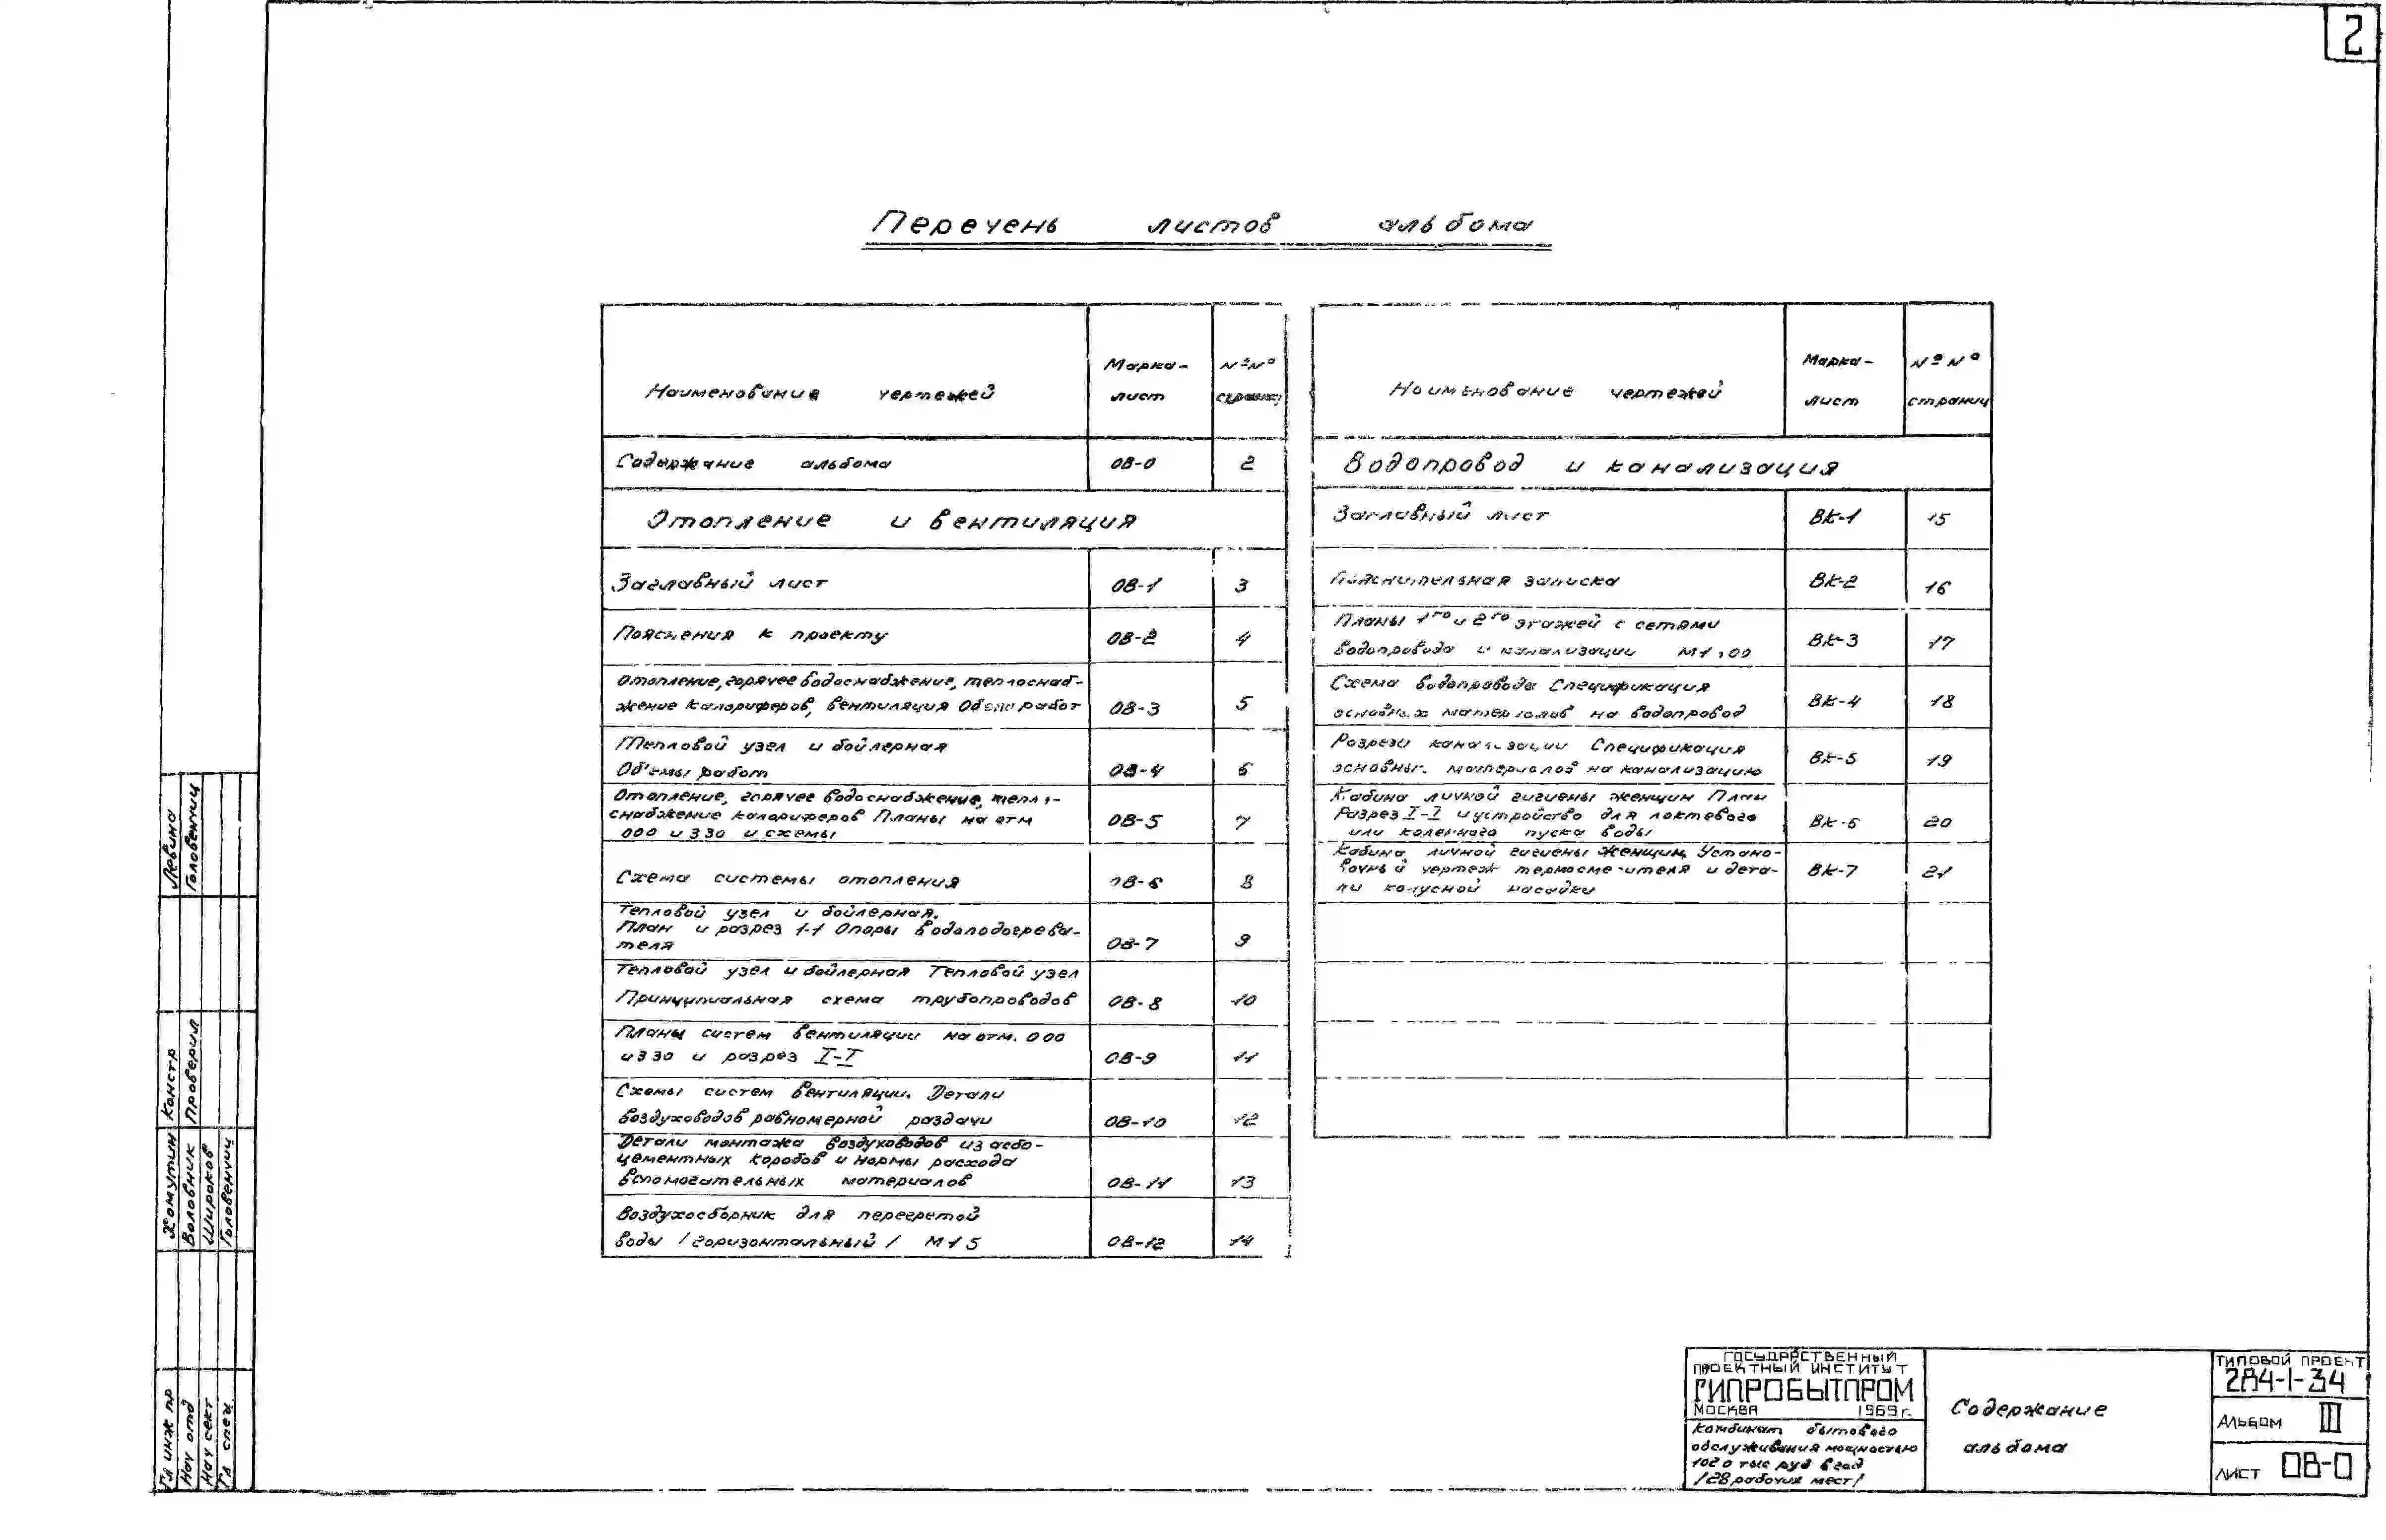 2
Перечень листов альбома
Наименование чертежей
Марка-
лист
№№
страниц
Содержание альбома ОВ-0 2
Отопление и вентиляция
Заглавный лист ОВ-1 3
Пояснения к проекту ОВ-2 4
Отопление, горячее водоснабжение, теплоснаб-
жение калориферов, вентиляция Объемы работ ОВ-3 5
Тепловой узел и бойлерная
Объемы работ ОВ-4 6
Отопление, горячее водоснабжение, тепло-
снабжение калориферов Планы на отм
000 и 330 и схемы ОВ-5 7
Схема системы отопления ОВ-6 8
Тепловой узел и бойлерная.
План и разрез 1-1 Опоры водоподогрева-
теля ОВ-7 9
Тепловой узел и бойлерная Тепловой узел
Принципиальная схема трубопроводов ОВ-8 10
Планы систем вентиляции на отм. 000
и 330 и разрез I-I ОВ-9 11
Схемы систем вентиляции. Детали
воздуховодов равномерной раздачи ОВ-10 12
Детали монтажа воздуховодов из асбо-
цементных коробов и нормы расхода
вспомогательных материалов ОВ-11 13
Воздухосборник для перегретой
воды /горизонтальный/ М 1 5 ОВ-12 14
Наименование чертежей
Марка-
лист
№№
страниц
Водопровод и канализация
Заглавный лист ВК-1 15
Пояснительная записка ВК-2 16
Планы 1го и 2го этажей с сетями
водопровода и канализации М1:00 ВК-3 17
Схема водопровода Спецификация
основных материалов на водопровод ВК-4 18
Разрезы канализации Спецификация
основных материалов на канализацию ВК-5 19
Кабина личной гигиены женщин План
Разрез I-I и устройство для локтевого
или коленного пуска воды ВК-6 20
Кабина личной гигиены женщин, Устано-
вочный чертеж термосмесителя и дета-
ли конусной насадки ВК-7 21
Левина
Головенчиц
Констр
Проверил
Хомутин
Воловник
Широков
Головенчиц
Гл инж пр
Нач отд
Нач сект
Гл спец
ГОСУДАРСТВЕННЫЙ
ПРОЕКТНЫЙ ИНСТИТУТ
ГИПРОБЫТПРОМ
МОСКВА 1969г.
Комбинат бытового
обслуживания мощностью
102 0 тыс руб в год
/28 рабочих мест/
Содержание
альбома
ТИПОВОЙ ПРОЕКТ
284-1-34
АЛЬБОМ III
ЛИСТ ОВ-0